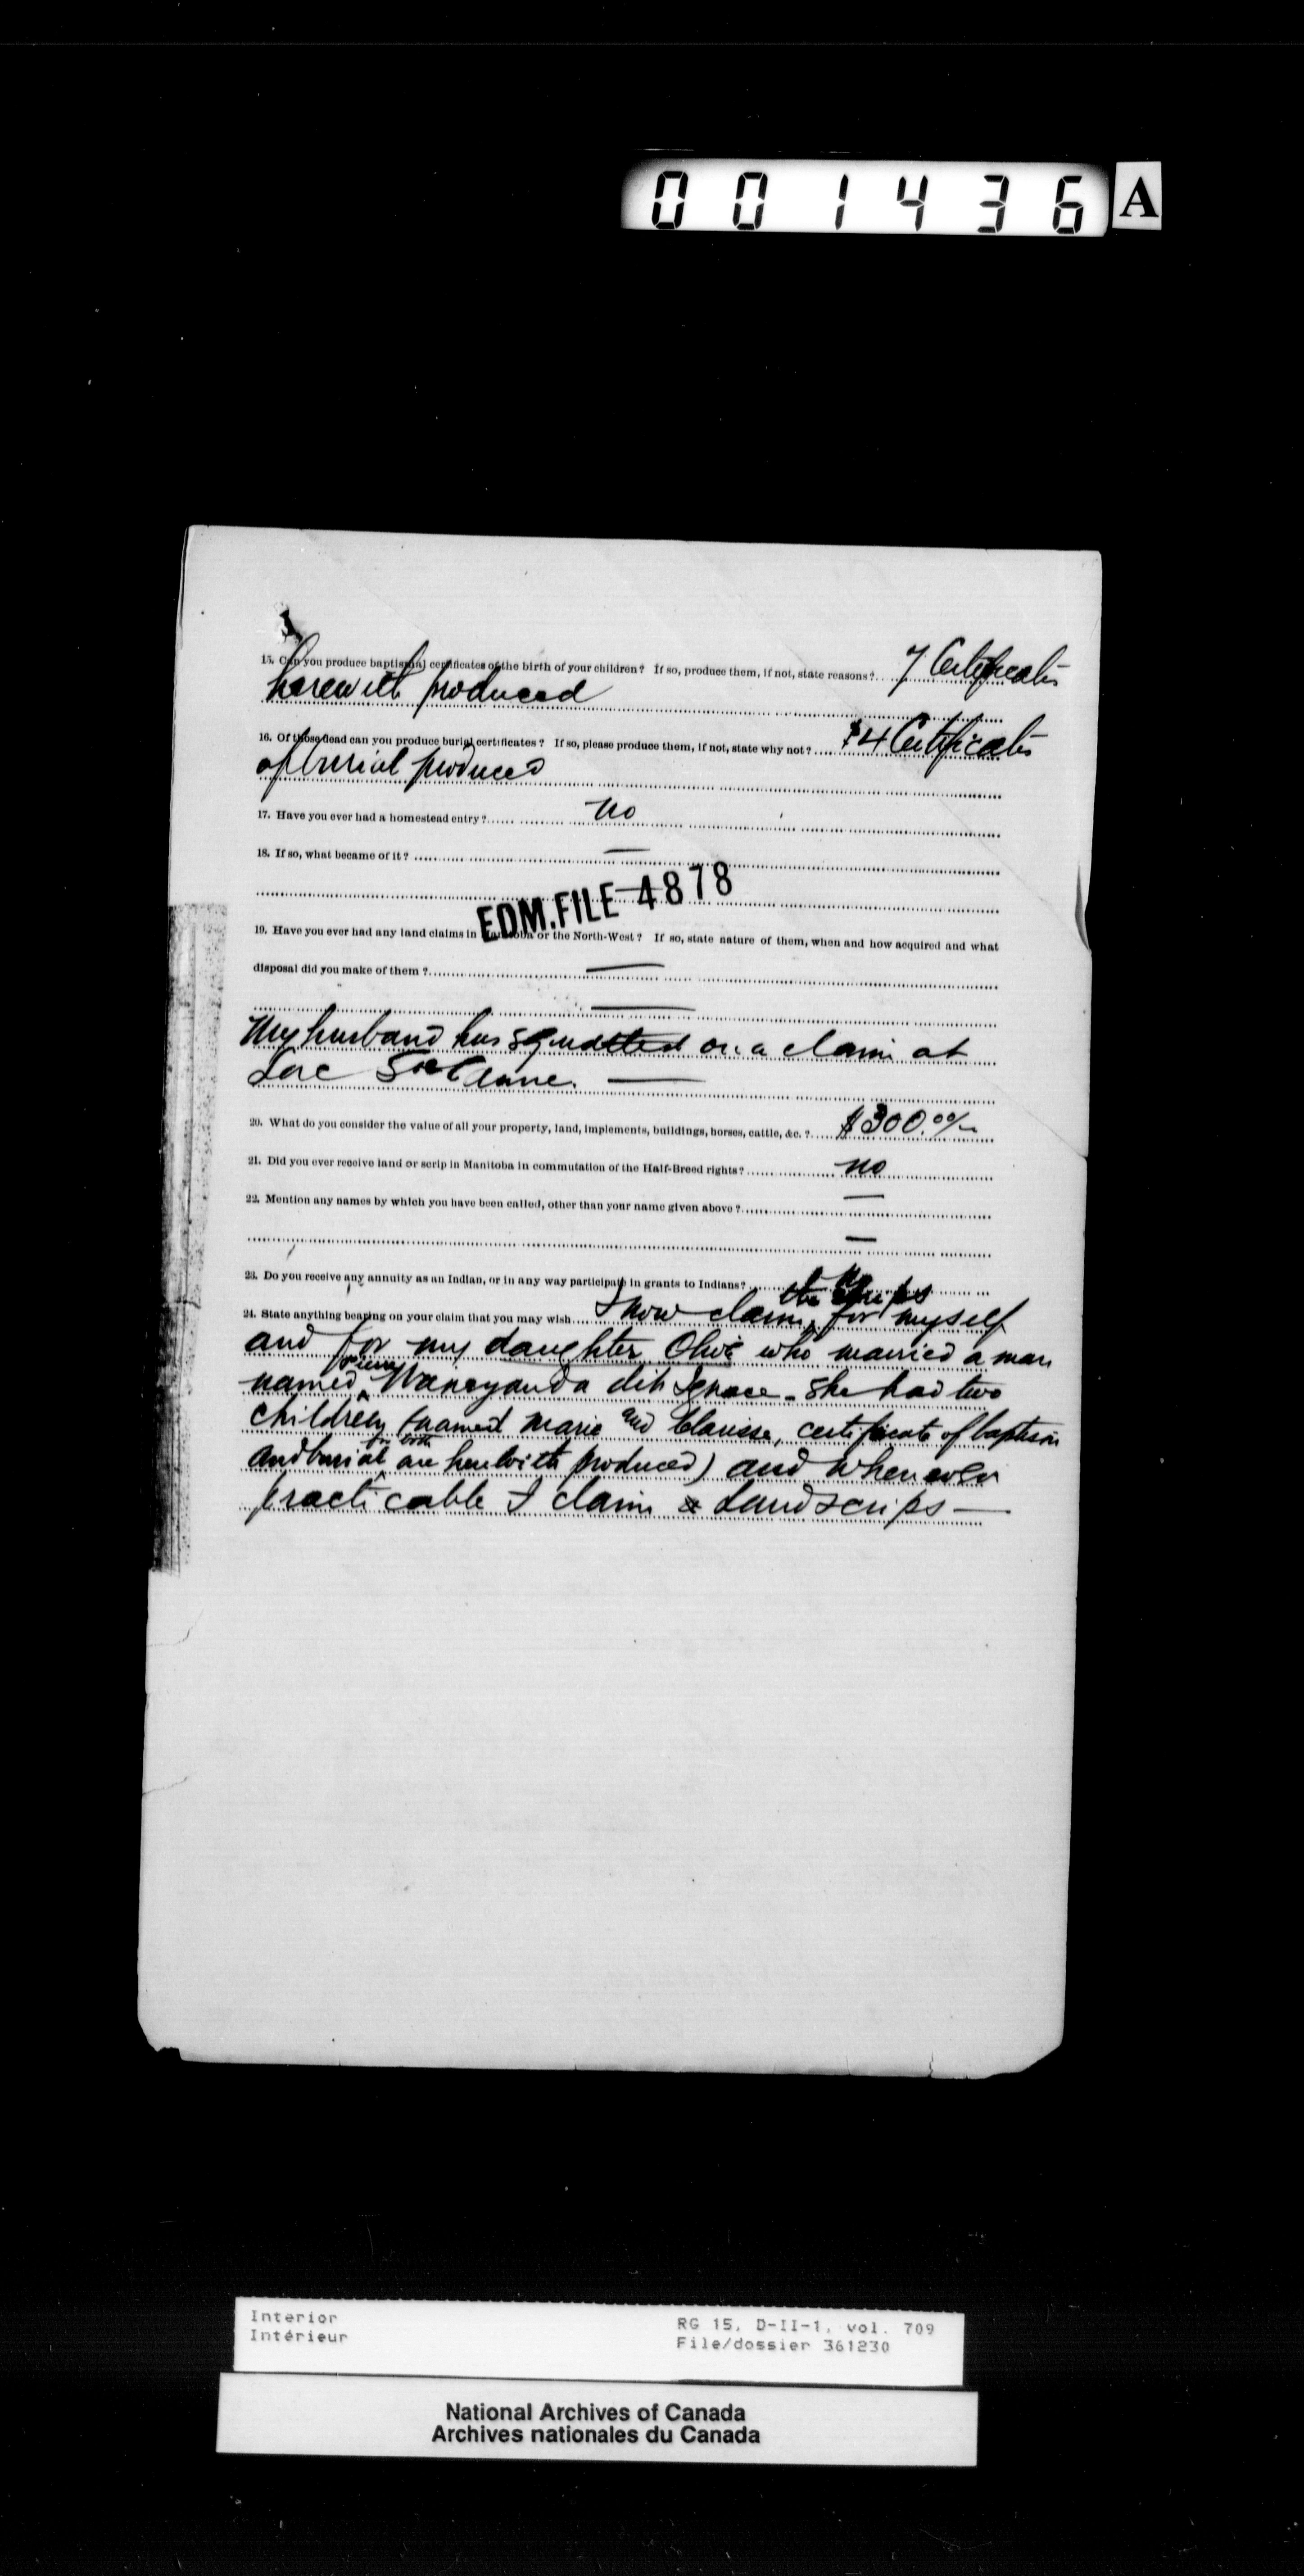 001436 A
15. Can you produce baptismal certificates of the birth of your children? If so, produce them, if not, state reasons? 7 Certificates
herewith produced
16. Of those dead can you produce burial certificates? If so, please produce them, if not, state why not? 4 Certificates
of burial produced
17. Have you ever had a homestead entry? no
18. If so, what became of it? —
EDM. FILE 4878
19. Have you ever had any land claims in Manitoba or the North-West? If so, state nature of them, when and how acquired and what
disposal did you make of them? —
—
My husband has squatted on a claim at
Lac Ste Anne. —
20. What do you consider the value of all your property, land, implements, buildings, horses, cattle, &c.? $300.00/
21. Did you ever receive land or scrip in Manitoba in commutation of the Half-Breed rights? no
22. Mention any names by which you have been called, other than your name given above? —
—
23. Do you receive any annuity as an Indian, or in any way participate in grants to Indians? no
the scrips
24. State anything bearing on your claim that you may wish I now claim, for myself
and for my daughter Olive who married a man
named Waneyanda dit Ignace - She had two
children (named Marie and Clarisse, certificate of baptism
for both
and burial are herewith produced) and whenever
practicable I claim Land scrips —
Interior
Intérieur
RG 15, D-II-1, vol. 709
File/dossier 361230
National Archives of Canada
Archives nationales du Canada